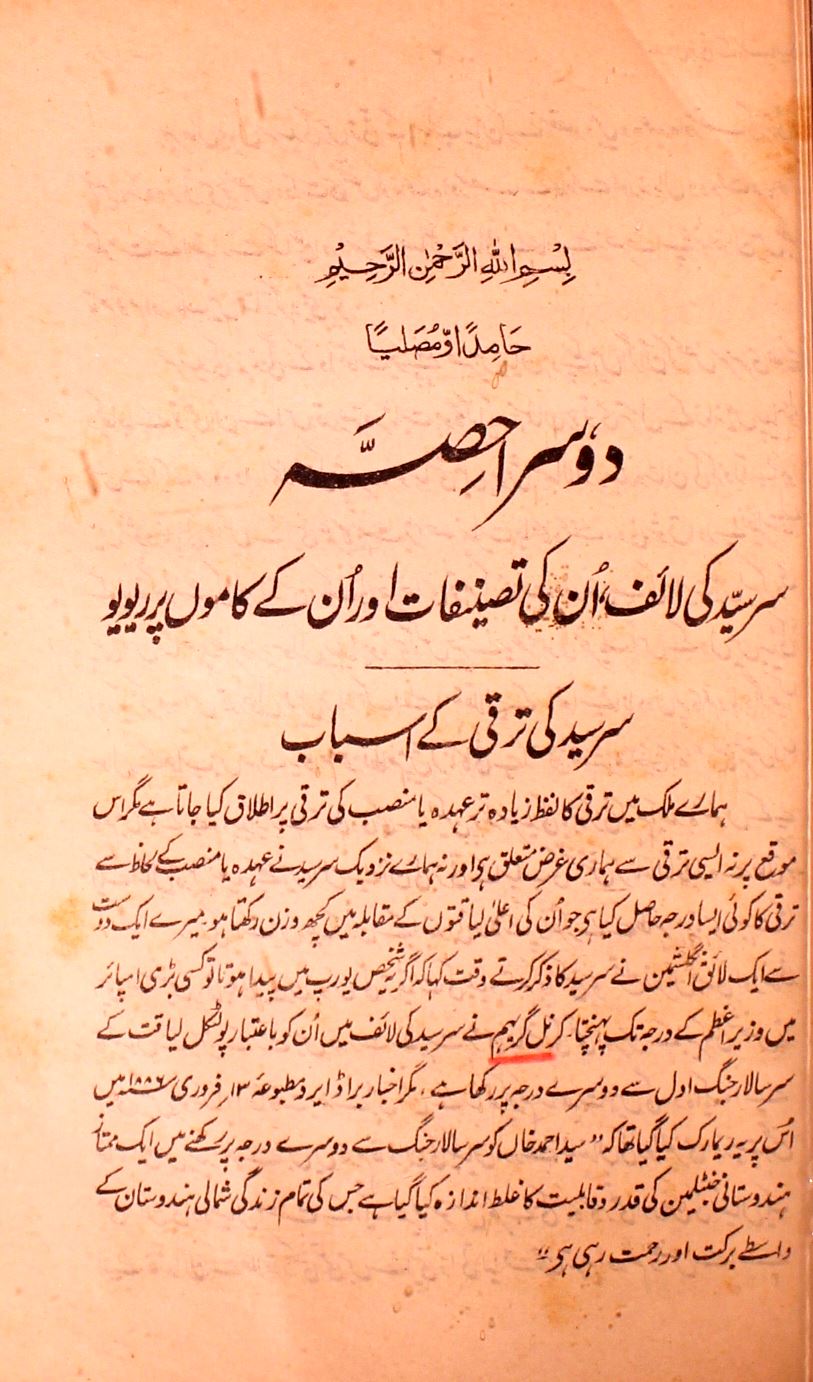 بِسْمِ اللهِ الرَّحْمٰنِ الرَّحِيْمِ
حَامِدًا وَّمُصَلِّيًا
دوسرا حِصّہ
سرسیّد کی لائف، اُن کی تصنیفات اور اُن کے کاموں پر ریویو
سرسید کی ترقی کے اسباب
ہمارے ملک میں ترقی کا لفظ زیادہ تر عہدہ یا منصب کی ترقی پر اطلاق کیا جاتا ہے مگر اس
موقع پر نہ ایسی ترقی سے ہماری غرض متعلق ہی اور نہ ہمارے نزدیک سرسید نے عہدہ یا منصب کے لحاظ سے
ترقی کا کوئی ایسا درجہ حاصل کیا ہی جو اُن کی اعلیٰ لیاقتوں کے مقابلہ میں کچھ وزن رکھتا ہو۔ میرے ایک دوست
سے ایک لائق انگلشمین نے سرسید کا ذکر کرتے وقت کہا کہ اگر یہ شخص یورپ میں پیدا ہوتا تو کسی بڑی امپائر
میں وزیر اعظم کے درجہ تک پہنچتا۔ کرنل گریہم نے سرسید کی لائف میں اُن کو باعتبار پولٹکل لیاقت کے
سر سالار جنگ اول سے دوسرے درجہ پر رکھا ہے، مگر اخبار براڈ ایرو مطبوعہ ۱۳ فروری ۱۸۸۶ء میں
اُس پر یہ ریمارک کیا گیا تھا کہ "سید احمد خاں کو سر سالار جنگ سے دوسرے درجہ پر رکھنے میں ایک ممتاز
ہندوستانی جنٹلمین کی قدر و قابلیت کا غلط اندازہ کیا گیا ہے جس کی تمام زندگی شمالی ہندوستان کے
واسطے برکت اور رحمت رہی ہی"